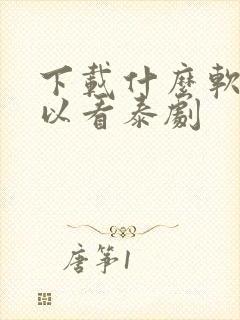 下載什麼軟
以看泰劇
唐筝1